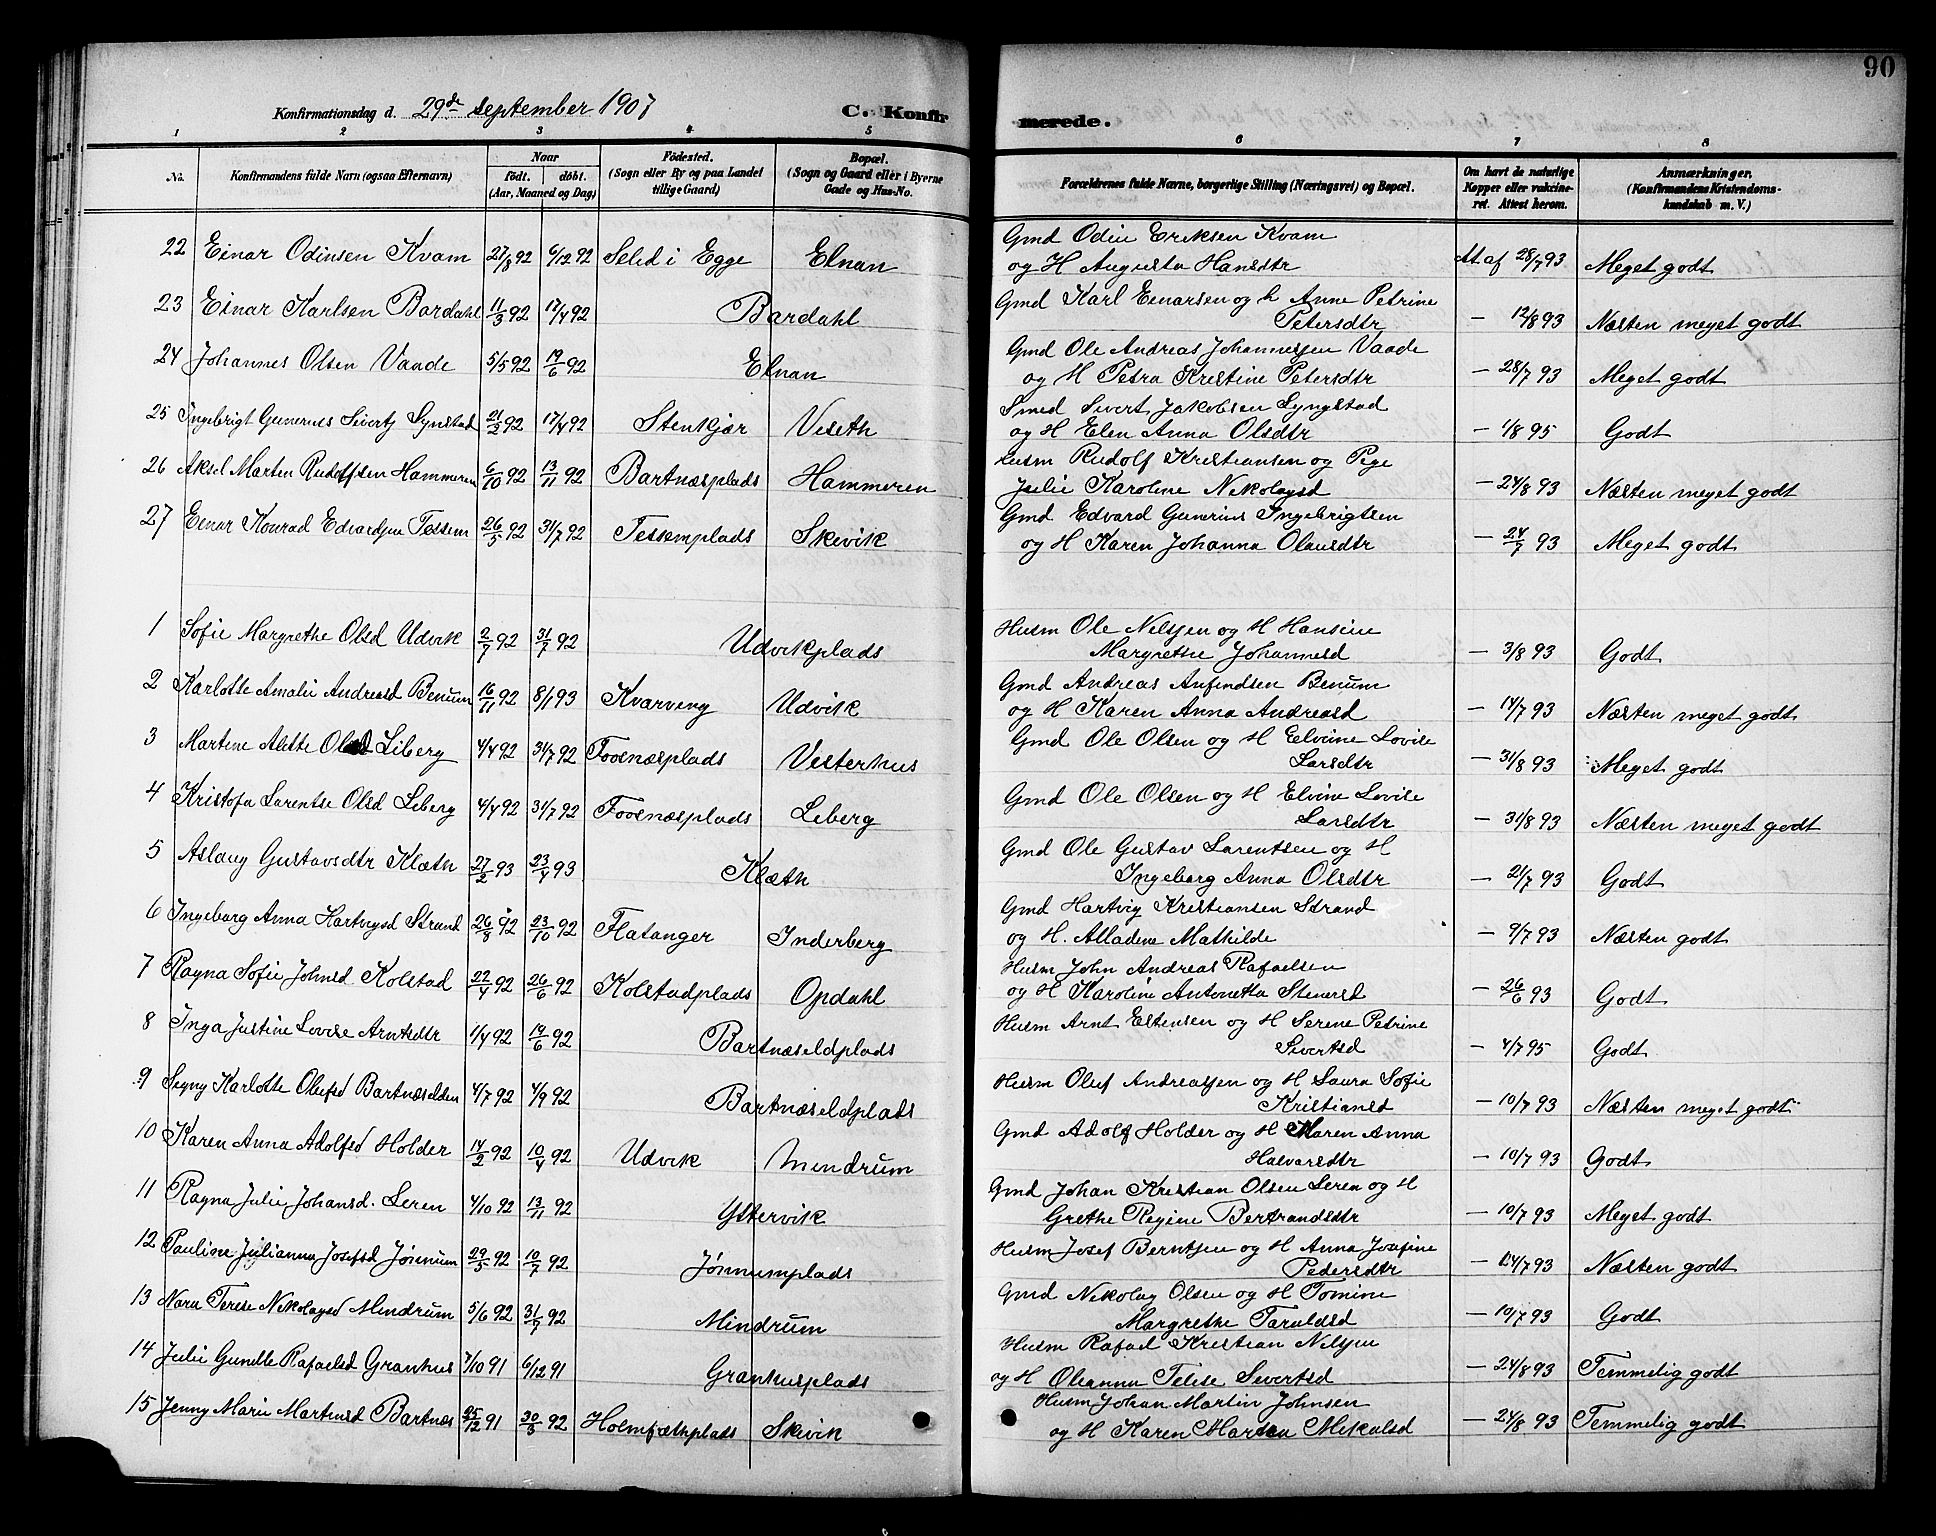 90
Konfirmationsdag d. 29de september 1907
C. Konfirmerede.
1 2 3 4 5 6 7 8
No.
Konfirmandens fulde Navn (ogsaa Efternavn)
Naar
født. døbt.
(Aar, Maaned og Dag)
Fødested.
(Sogn eller By og paa Landet tillige Gaard)
Bopæl.
(Sogn og Gaard eller i Byerne Gade og Hus-No.
Forældrenes fulde Navne, borgerlige Stilling (Næringsvei) og Bopæl.
Om havt de naturlige Kopper eller vakcineret. Attest herom.
Anmærkninger.
(Konfirmandens Kristendomskundskab m. V.)
22 Einar Odinsen Kvam 27/8 92 6/12 92 Selid i Egge Elnan Gmd Odin Eriksen Kvam
og H Augusta Hansdtr At af 28/7 93 Meget godt
23 Einar Karlsen Bardahl 11/3 92 17/4 92 Bardahl Gmd Karl Einarsen og h Anne Petrine
Petersdtr — 12/8 93 Næsten meget godt
24 Johannes Olsen Vaade 5/5 92 19/6 92 Elnan Gmd Ole Andreas Johannessen Vaade
og H Petra Kristine Petersdtr — 28/7 93 Meget godt
25 Ingebrigt Gunerius Sivertz Synstad 21/2 92 17/4 92 Stenkjær Viseth Smed Sivert Jakobsen Syngstad
og H Elen Anna Olsdtr — 1/8 95 Godt
26 Aksel Marten Rudolfsen Hammeren 6/10 92 13/11 92 Bartnæsplads Hammeren Husm Rudolf Kristiansen og Pige
Julie Karoline Nikolaysd — 24/8 93 Næsten meget godt
27 Einar Konrad Edvardsen Tessem 26/5 92 31/7 92 Tessemplads Skivik Gmd Edvard Gunerius Ingebrigtsen
og H Karen Johanna Olausdtr — 24/7 93 Meget godt
1 Sofie Margrethe Olsd Udvik 2/7 92 31/7 92 Udvikplads Husm Ole Nilssen og H Hansine
Margrethe Johannesd — 3/8 93 Godt
2 Karlotte Amalie Andreasd Benum 16/11 92 8/1 93 Kvarving Udvik Gmd Andreas Anfindsen Benum
og H Karen Anna Andreasd — 14/7 93 Næsten meget godt
3 Martine Alette Olsd Liberg 4/4 92 31/7 92 Foosnæsplads Vesterhus Gmd Ole Olsen og H Elvine Lovise
Larsdtr — 31/8 93 Meget godt
4 Kristofa Larentse Olsd Leberg 4/4 92 31/7 92 Foosnæsplads Leberg Gmd Ole Olsen og H Elvine Lovise
Larsdtr — 31/8 93 Næsten meget godt
5 Aslaug Gustavsdtr Klæth 27/2 93 23/4 93 Klæth Gmd Ole Gustav Larentsen og H
Ingeborg Anna Olsdtr — 21/7 93 Godt
6 Ingeborg Anna Hartvigsd Strand 26/8 92 23/10 92 Flatanger Inderberg Gmd Hartvig Kristiansen Strand
og H. Alladine Mathilde — 9/7 93 Næsten godt
7 Ragna Sofie Johnsd Kolstad 22/4 92 26/6 92 Kolstadplads Opdahl Husm John Andreas Rafaelsen
og H Karoline Antonetta Stenersd — 26/6 93 Godt
8 Inga Justine Lovise Arntsdtr 1/4 92 19/6 92 Bartnæseldplads Husm Arnt Estensen og H Serine Petrine
Sivertsd — 4/7 95 Godt
9 Signy Karlotte Olufsd Bartnæselden 4/7 92 4/9 92 Bartnæseldplads Husm Oluf Andreassen og H Laura Sofie
Kristiansd — 10/7 93 Næsten meget godt
10 Karen Anna Adolfsd Holder 14/2 92 10/4 92 Udvik Mindrum Gmd Adolf Holder og H Karen Anna
Halvarsdtr — 10/7 93 Godt
11 Ragna Julie Johansd. Leren 4/10 92 13/11 92 Ystervik Gmd Johan Kristian Olsen Leren og H
Grethe Regine Bertrandsdtr — 10/7 93 Meget godt
12 Pauline Julianna Josefsd Jørmum 29/5 92 10/7 92 Jørmumplads Husm Josef Berntsen og H Anna Josefine
Pedersdtr — 14/7 93 Næsten godt
13 Nora Terese Nikolaysd Mindrum 5/6 92 31/7 92 Mindrum Gmd Nikolay Olsen og H Tomine
Margrethe Taraldsd — 10/7 93 Godt
14 Julie Gunelle Rafaelsd Granhus 7/10 91 6/12 91 Granhusplads Husm Rafael Kristian Nilsen
og H Oleanna Telise Sivertsd — 24/8 93 Temmelig godt
15 Jenny Marie Martinsd Bartnæs 25/12 91 30/3 92 Holmfæthplads Skivik Husm Johan Martin Johnsen
og H Karen Marta Mikalsd — 24/8 93 Temmelig godt